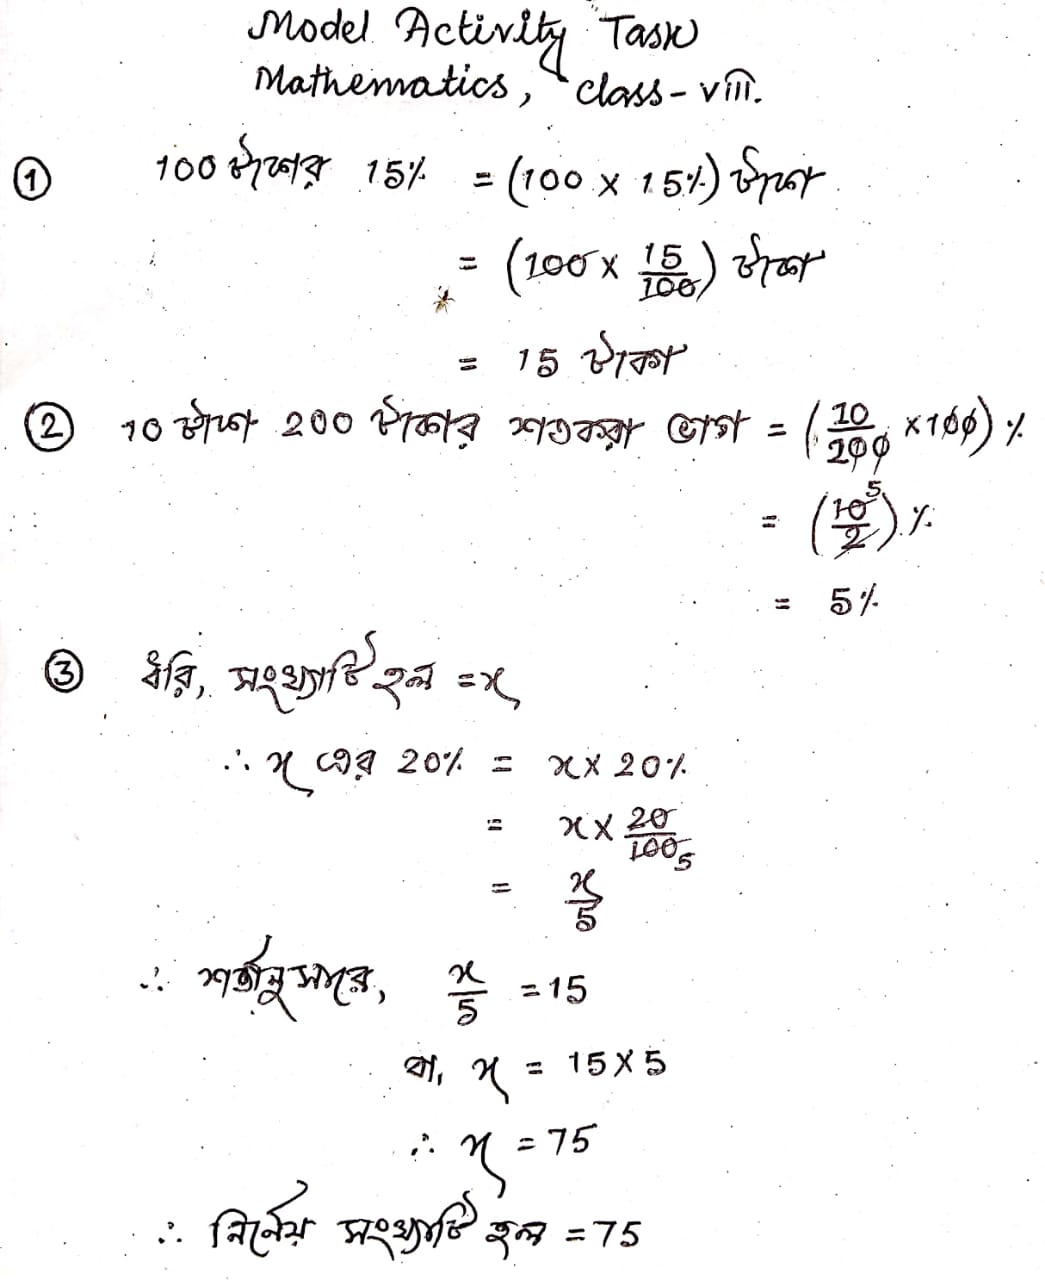 Model Activity Task
Mathematics, class-viii.
① 100 টাকার 15% = (100 x 15%) টাকা
= (100 x 15/100) টাকা
= 15 টাকা
② 10 টাকা 200 টাকার শতকরা ভাগ = (10/200 x 100) %
= (10/2) % 5
= 5%
③ ধরি, সংখ্যাটি হল = x
∴ x এর 20% = x x 20%
= x x 20/100 5
= x/5
∴ শর্তানুসারে, x/5 = 15
বা, x = 15 x 5
∴ x = 75
∴ নির্নেয় সংখ্যাটি হল = 75